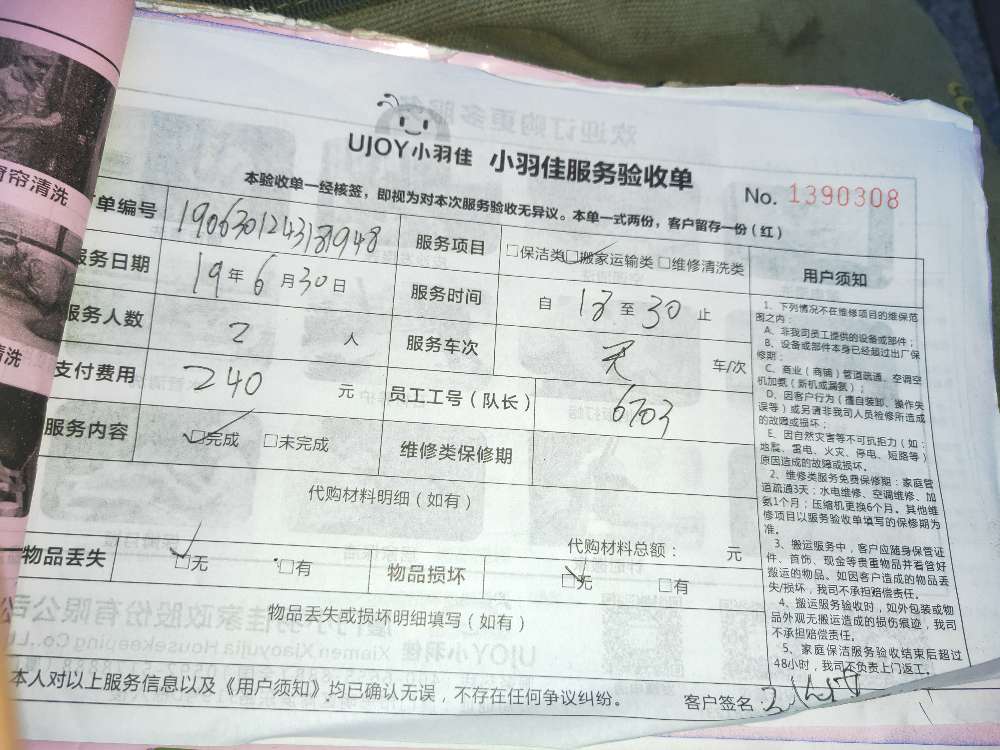 UJOY小羽佳 小羽佳服务验收单
No. 1390308
本验收单一经核签，即视为对本次服务验收无异议。本单一式两份，客户留存一份（红）
单编号 1906301243181948 服务项目 □保洁类 □搬家运输类 □维修清洗类
服务日期 19年6月30日 服务时间 自 18 至 30 止
服务人数 2 人 服务车次 车/次
支付费用 240 元 员工工号（队长） 6703
服务内容 □完成 □未完成 维修类保修期
代购材料明细（如有）
代购材料总额： 元
物品丢失 □无 □有 物品损坏 □无 □有
物品丢失或损坏明细填写（如有）
本人对以上服务信息以及《用户须知》均已确认无误，不存在任何争议纠纷。 客户签名
用户须知
1、下列情况不在维修项目的维保范
围之内：
A、非我司员工提供的设备或部件；
B、设备或部件本身已经超过出厂保
修期；
C、商业（商铺）管道疏通、空调空
机加氨（新机或漏氨）；
D、因客户行为（擅自装卸、操作失
误等）或另请非我司人员检修所造成
的故障或损坏；
E、因自然灾害等不可抗拒力（如：
地震、雷电、火灾、停电、短路等）
原因造成的故障或损坏。
2、维修类服务免费保修期：家庭管
道疏通3天；水电维修、空调维修、加
氨1个月；压缩机更换6个月。其他维
修项目以服务验收单填写的保修期为
准。
3、搬运服务中，客户应随身保管证
件、首饰、现金等贵重物品并看管好
搬运的物品。如因客户造成的物品丢
失/损坏，我司不承担赔偿责任。
4、搬运服务验收时，如外包装或物
品外观无搬运造成的损伤痕迹，我司
不承担赔偿责任。
5、家庭保洁服务验收结束后超过
48小时，我司不负责上门返工。
帘清洗
清洗